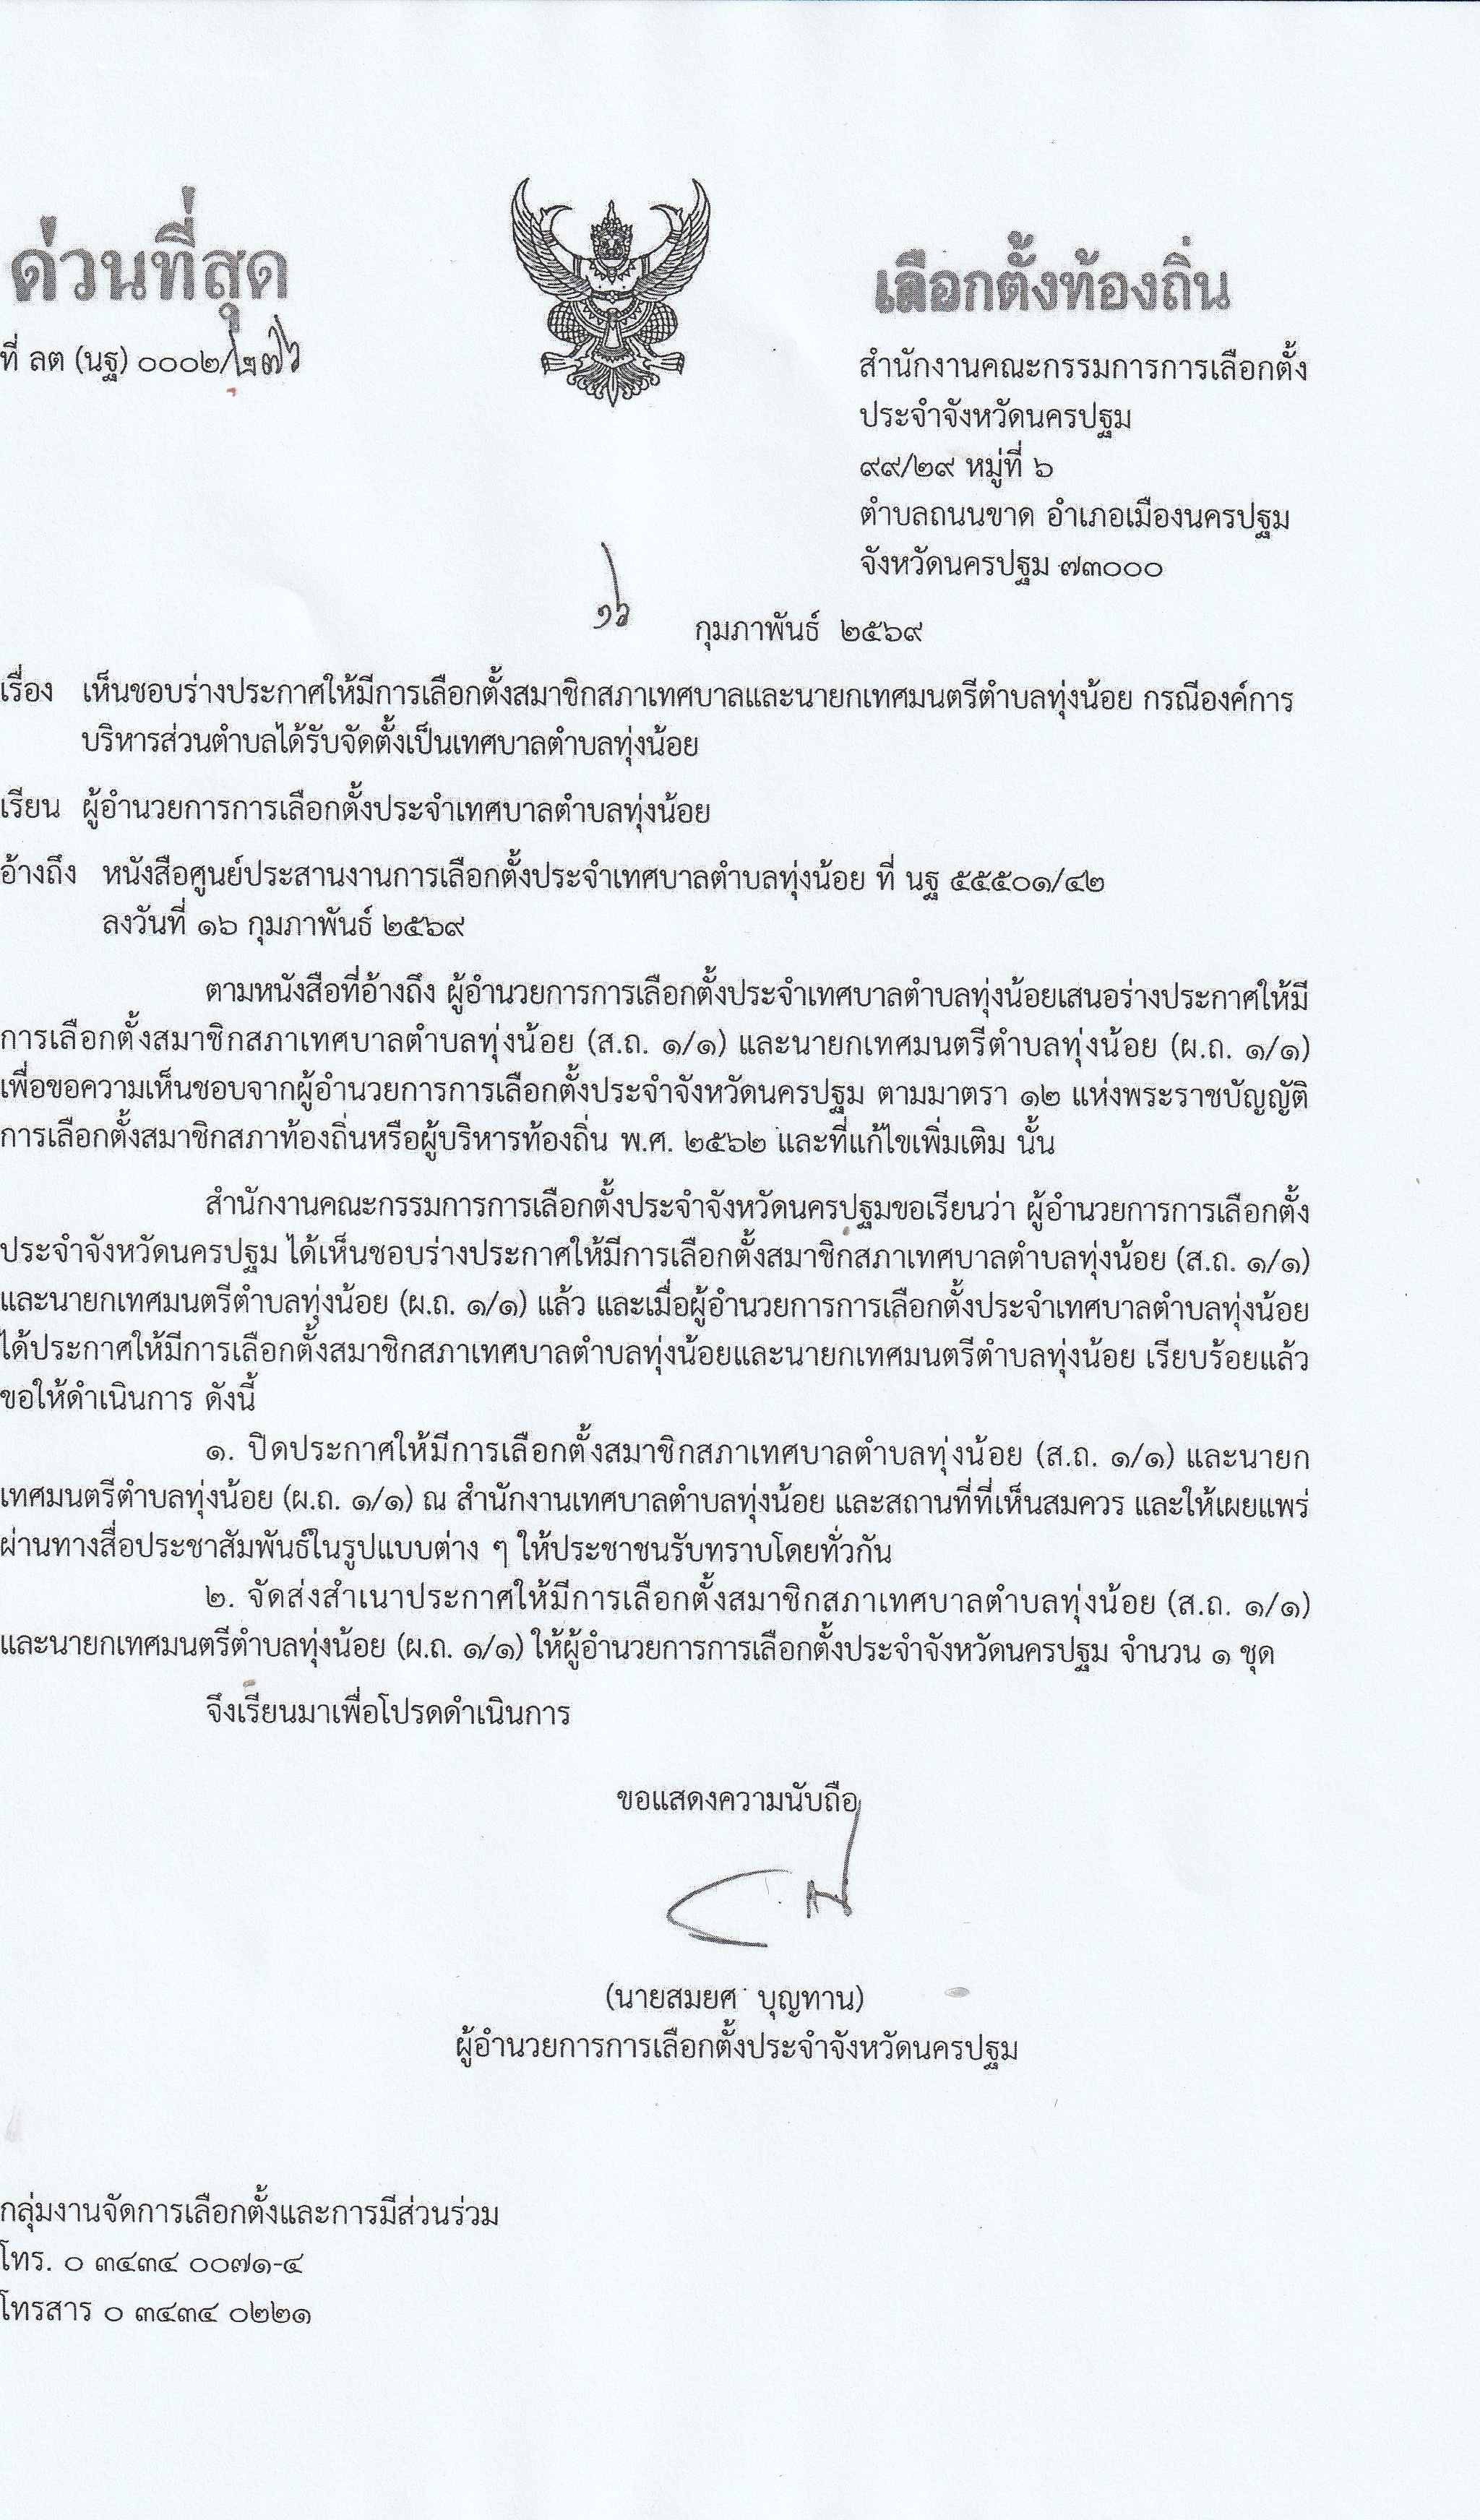 ด่วนที่สุด
เลือกตั้งท้องถิ่น
ที่ ลต (นฐ) ๐๐๐๒/๒๗๖
สำนักงานคณะกรรมการการเลือกตั้ง
ประจำจังหวัดนครปฐม
๙๙/๒๙ หมู่ที่ ๖
ตำบลถนนขาด อำเภอเมืองนครปฐม
จังหวัดนครปฐม ๗๓๐๐๐
๑๖ กุมภาพันธ์ ๒๕๖๙
เรื่อง เห็นชอบร่างประกาศให้มีการเลือกตั้งสมาชิกสภาเทศบาลและนายกเทศมนตรีตำบลทุ่งน้อย กรณีองค์การ
บริหารส่วนตำบลได้รับจัดตั้งเป็นเทศบาลตำบลทุ่งน้อย
เรียน ผู้อำนวยการการเลือกตั้งประจำเทศบาลตำบลทุ่งน้อย
อ้างถึง หนังสือศูนย์ประสานงานการเลือกตั้งประจำเทศบาลตำบลทุ่งน้อย ที่ นฐ ๕๕๕๐๑/๔๒
ลงวันที่ ๑๖ กุมภาพันธ์ ๒๕๖๙
ตามหนังสือที่อ้างถึง ผู้อำนวยการการเลือกตั้งประจำเทศบาลตำบลทุ่งน้อยเสนอร่างประกาศให้มี
การเลือกตั้งสมาชิกสภาเทศบาลตำบลทุ่งน้อย (ส.ถ. ๑/๑) และนายกเทศมนตรีตำบลทุ่งน้อย (ผ.ถ. ๑/๑)
เพื่อขอความเห็นชอบจากผู้อำนวยการการเลือกตั้งประจำจังหวัดนครปฐม ตามมาตรา ๑๒ แห่งพระราชบัญญัติ
การเลือกตั้งสมาชิกสภาท้องถิ่นหรือผู้บริหารท้องถิ่น พ.ศ. ๒๕๖๒ และที่แก้ไขเพิ่มเติม นั้น
สำนักงานคณะกรรมการการเลือกตั้งประจำจังหวัดนครปฐมขอเรียนว่า ผู้อำนวยการการเลือกตั้ง
ประจำจังหวัดนครปฐม ได้เห็นชอบร่างประกาศให้มีการเลือกตั้งสมาชิกสภาเทศบาลตำบลทุ่งน้อย (ส.ถ. ๑/๑)
และนายกเทศมนตรีตำบลทุ่งน้อย (ผ.ถ. ๑/๑) แล้ว และเมื่อผู้อำนวยการการเลือกตั้งประจำเทศบาลตำบลทุ่งน้อย
ได้ประกาศให้มีการเลือกตั้งสมาชิกสภาเทศบาลตำบลทุ่งน้อยและนายกเทศมนตรีตำบลทุ่งน้อย เรียบร้อยแล้ว
ขอให้ดำเนินการ ดังนี้
๑. ปิดประกาศให้มีการเลือกตั้งสมาชิกสภาเทศบาลตำบลทุ่งน้อย (ส.ถ. ๑/๑) และนายก
เทศมนตรีตำบลทุ่งน้อย (ผ.ถ. ๑/๑) ณ สำนักงานเทศบาลตำบลทุ่งน้อย และสถานที่ที่เห็นสมควร และให้เผยแพร่
ผ่านทางสื่อประชาสัมพันธ์ในรูปแบบต่าง ๆ ให้ประชาชนรับทราบโดยทั่วกัน
๒. จัดส่งสำเนาประกาศให้มีการเลือกตั้งสมาชิกสภาเทศบาลตำบลทุ่งน้อย (ส.ถ. ๑/๑)
และนายกเทศมนตรีตำบลทุ่งน้อย (ผ.ถ. ๑/๑) ให้ผู้อำนวยการการเลือกตั้งประจำจังหวัดนครปฐม จำนวน ๑ ชุด
จึงเรียนมาเพื่อโปรดดำเนินการ
ขอแสดงความนับถือ
(นายสมยศ บุญทาน)
ผู้อำนวยการการเลือกตั้งประจำจังหวัดนครปฐม
กลุ่มงานจัดการเลือกตั้งและการมีส่วนร่วม
โทร. ๐ ๓๔๓๔ ๐๐๗๑-๔
โทรสาร ๐ ๓๔๓๔ ๐๒๒๑